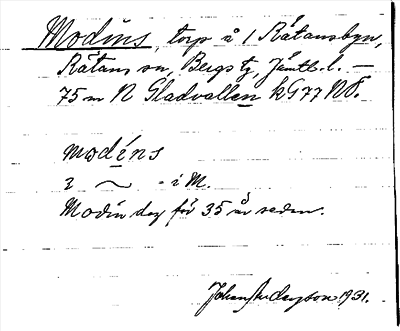 Modins, torp å 1 Råtansbyn,
Råtans sn, Bergs tg, Jämtl. l. —
75 m N Gladvallen kG77 NV.
modíns
i ~ - i M.
Modin dog för 35 år sedan.
Johan Anderson 1931.